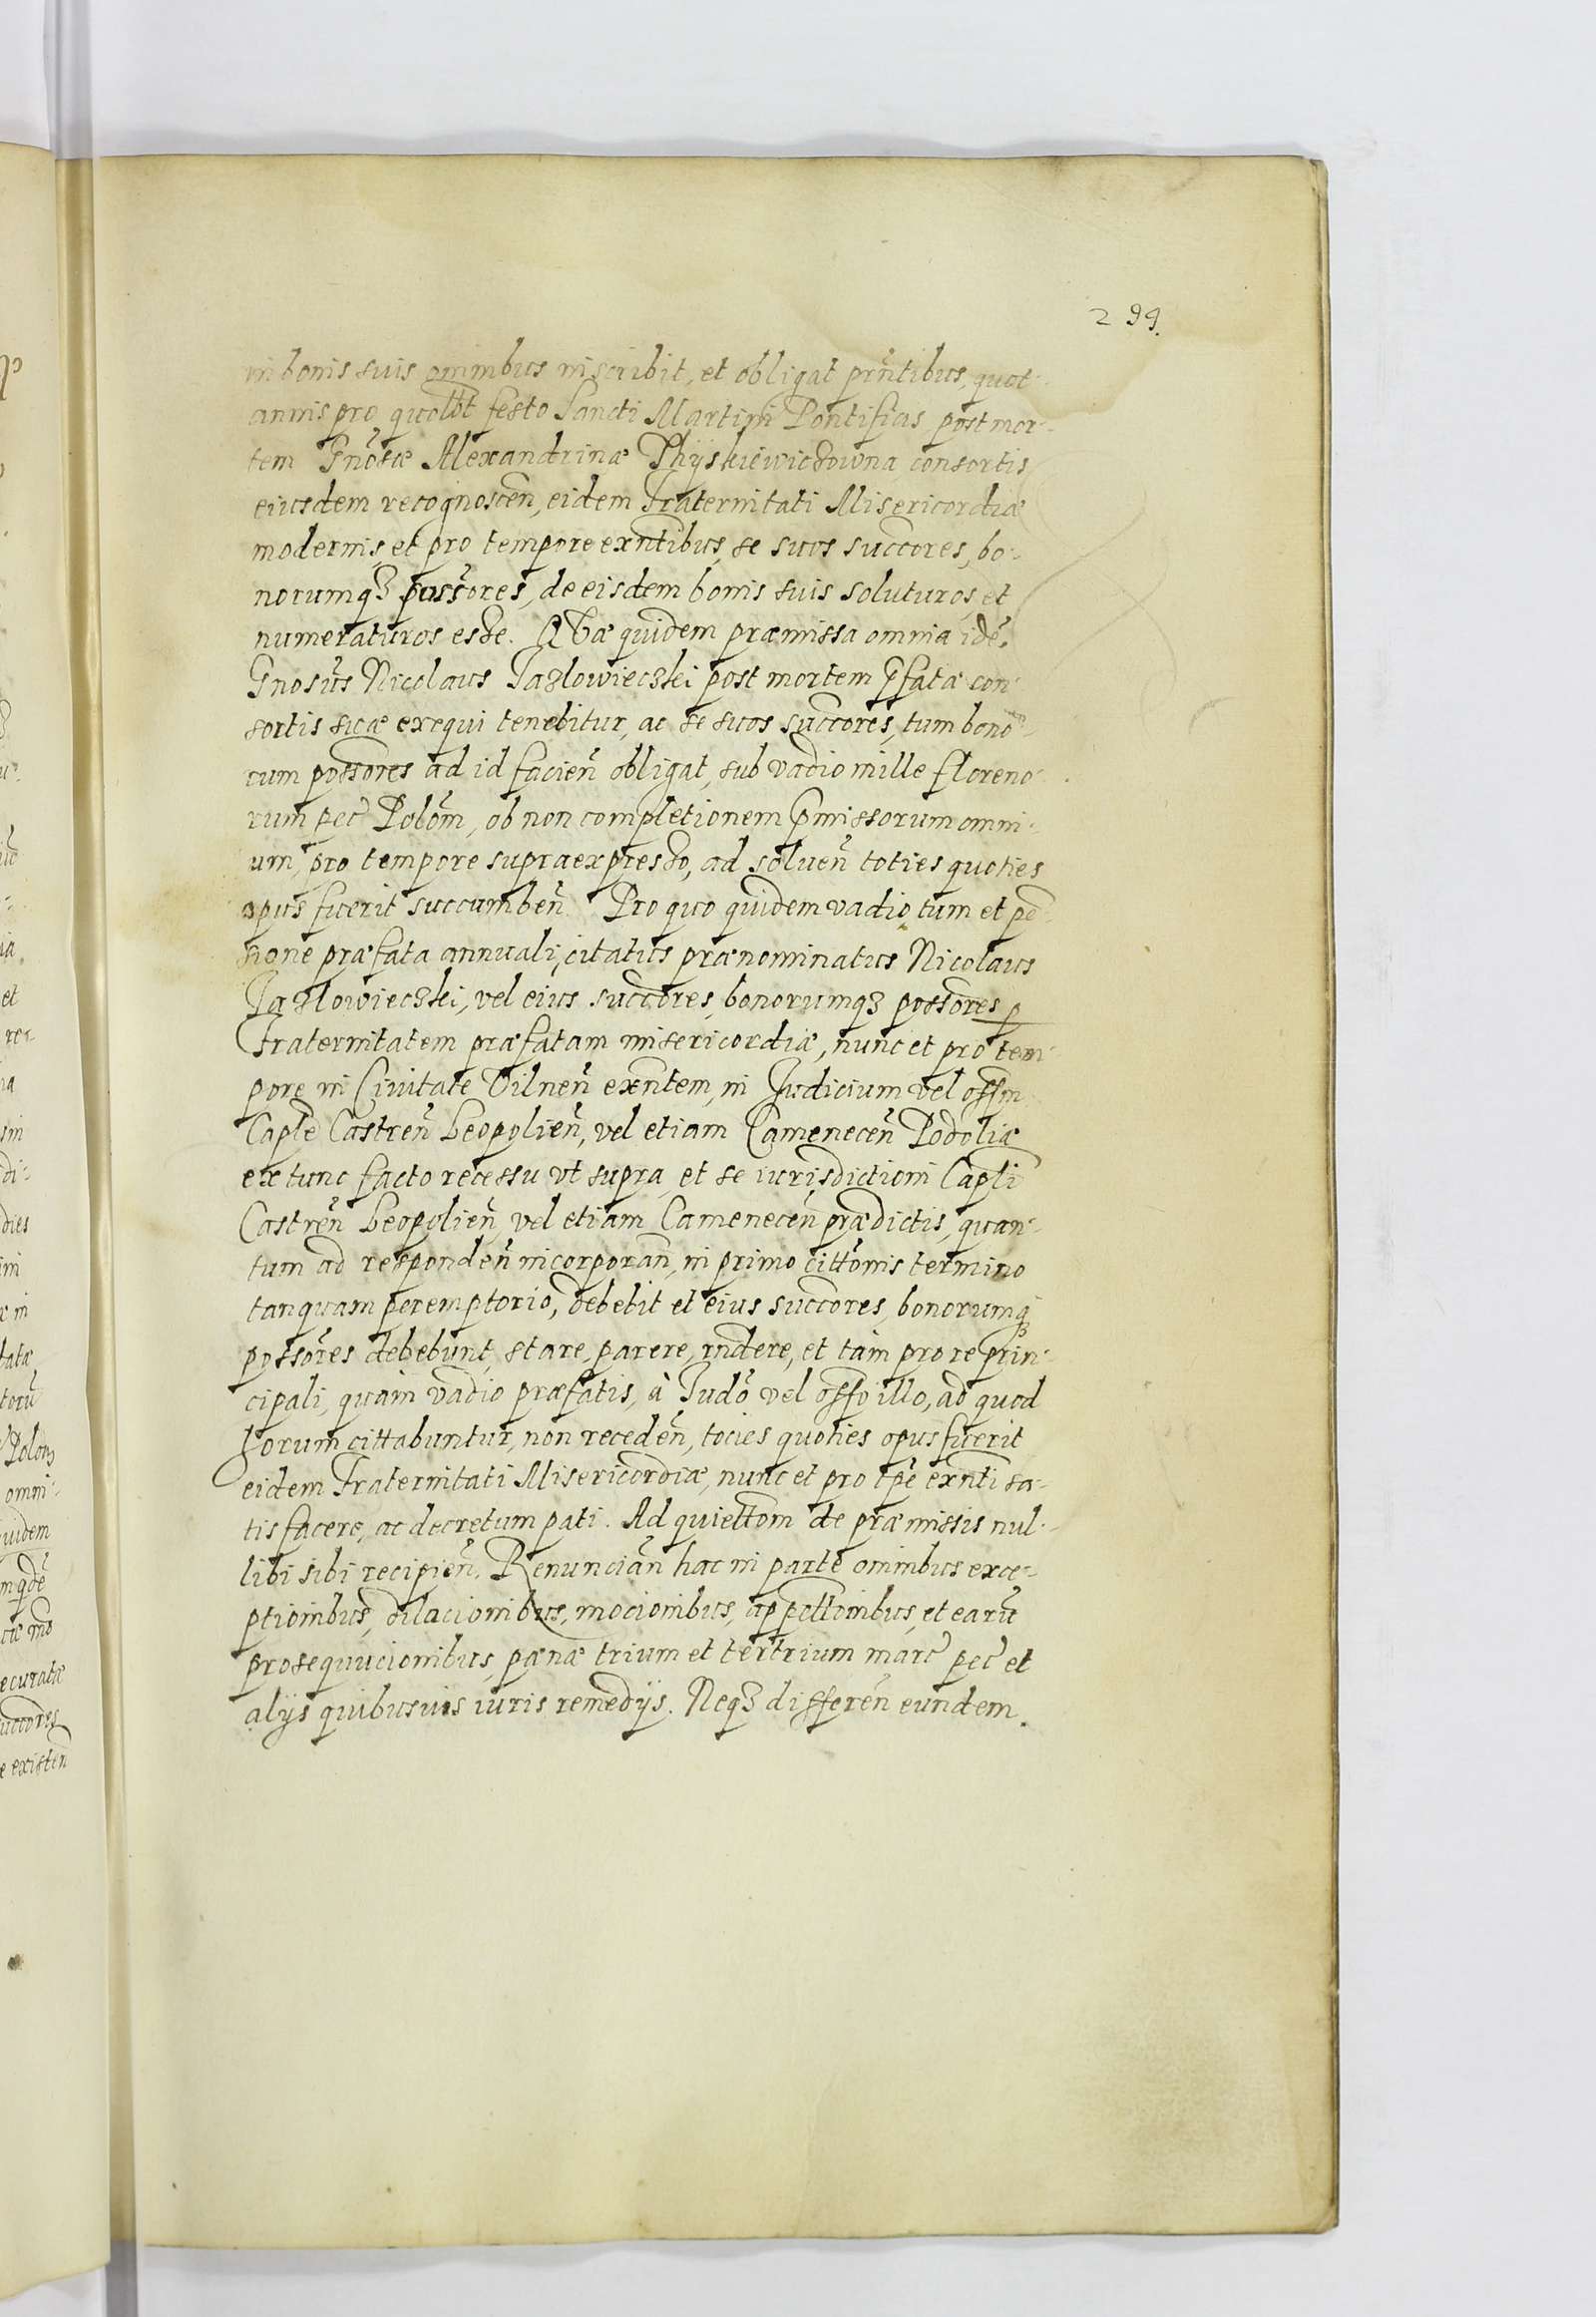 299.
in bonis suis omnibus inscribit, et obligat prñtibus, quot-
annis pro quolt̃t festo Sancti Martini Pontificis post mor-
tem Gnosæ Alexandrinæ Thÿskiewiczowna consortis
eiusdem recognoscen̄, eidem Fraternitati Misericordiæ
modernis, et pro tempore exñtibus, se suos succores, bo-
norumqꝫ possores, de eisdem bonis suis soluturos, et
numeraturos esse. Quæ quidem præmissa omnia idē.
Gnosus Nicolaus Jazlowieczki post mortem p̄fatæ con-
sortis suæ exequi tenebitur, ac se suos succores, tum bono-
rum possores ad id facien̄ obligat, sub vadio mille floreno-
rum pec̄ Polōm, ob non completionem p̄missorum omni-
um, pro tempore supraexpresso, ad soluen̄ toties quoties
opus fuerit succumben̄. Pro quo quidem vadio, tum et pē-
sione præfata annuali, citatus prænominatus Nicolaus
Jazlowieczki, vel eius succores, bonorumqꝫ possores p̱
Fraternitatem præfatam misericordiæ, nunc et pro tem-
pore in Ciuitate Vilnen̄ exñtem, in Judicium vel offm
Caple Castren̄ Leopolien̄, vel etiam Camenecen̄ Podoliæ
ex tunc facto recessu vt supra, et se iurisdictioni Capli
Castren̄ Leopolien̄, vel etiam Camenecen̄ prædictis, quan-
tum ad responden̄ incorporan̄, in primo citt̃onis termino
tanquam peremptorio, debebit et eius succores, bonorumqꝫ
possores debebunt, stare, parere, rndere, et tam pro re prin-
cipali, quàm vadio præfatis, à Judō vel offo illo, ad quod
horum cittabuntur, non receden̄, tocies quoties opus fuerit
eidem Fraternitati Misericordiæ, nunc et pro tp̄e exñti sa-
tisfacere, ac decretum pati. Ad quiettom de præmissis nul-
libi sibi recipien̄. Renuncian̄ hac in parte omnibus exce-
ptionibus, dilacionibus, mocionibus, appellonibus, et earū
prosequucionibus, pænæ trium et tertrium marc̄ pec̄ et
alÿs quibusuis iuris remedÿs. Neqꝫ differen̄ eundem.